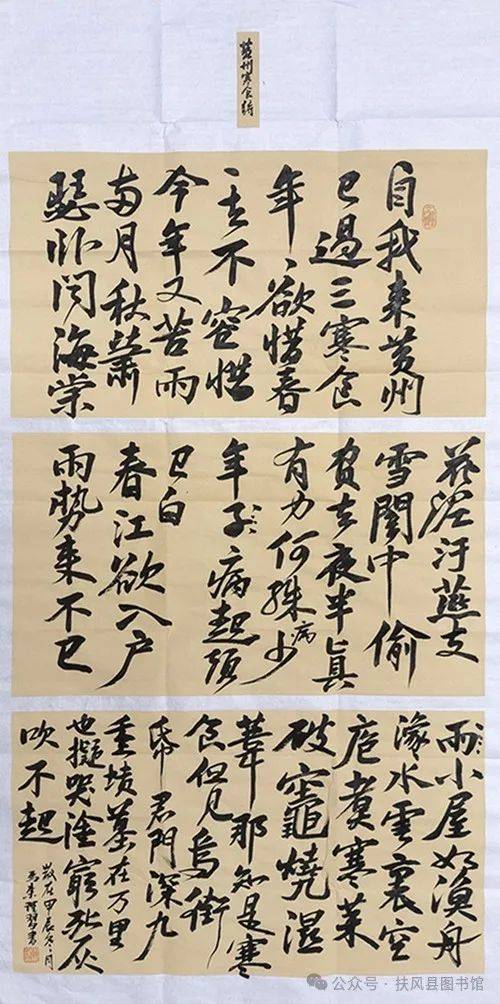 黄州寒食詩
自我来黄州
已過三寒食
年、欲惜春
去不容惜
今年又苦雨
两月秋蕭
瑟卧闻海棠
花泥汙燕支
雪闇中偷
負去夜半真
有力何殊病少
年子病起頭
已白
春江欲入户
雨势来不已
雨小屋如漁舟
濛水雲裏空
庖煮寒菜
破竈燒濕
葦那知是寒
食但见烏銜
帋君門深九
重墳墓在万里
也擬哭塗窮死灰
吹不起
歲在甲辰冬月
習書
公众号·扶风县图书馆